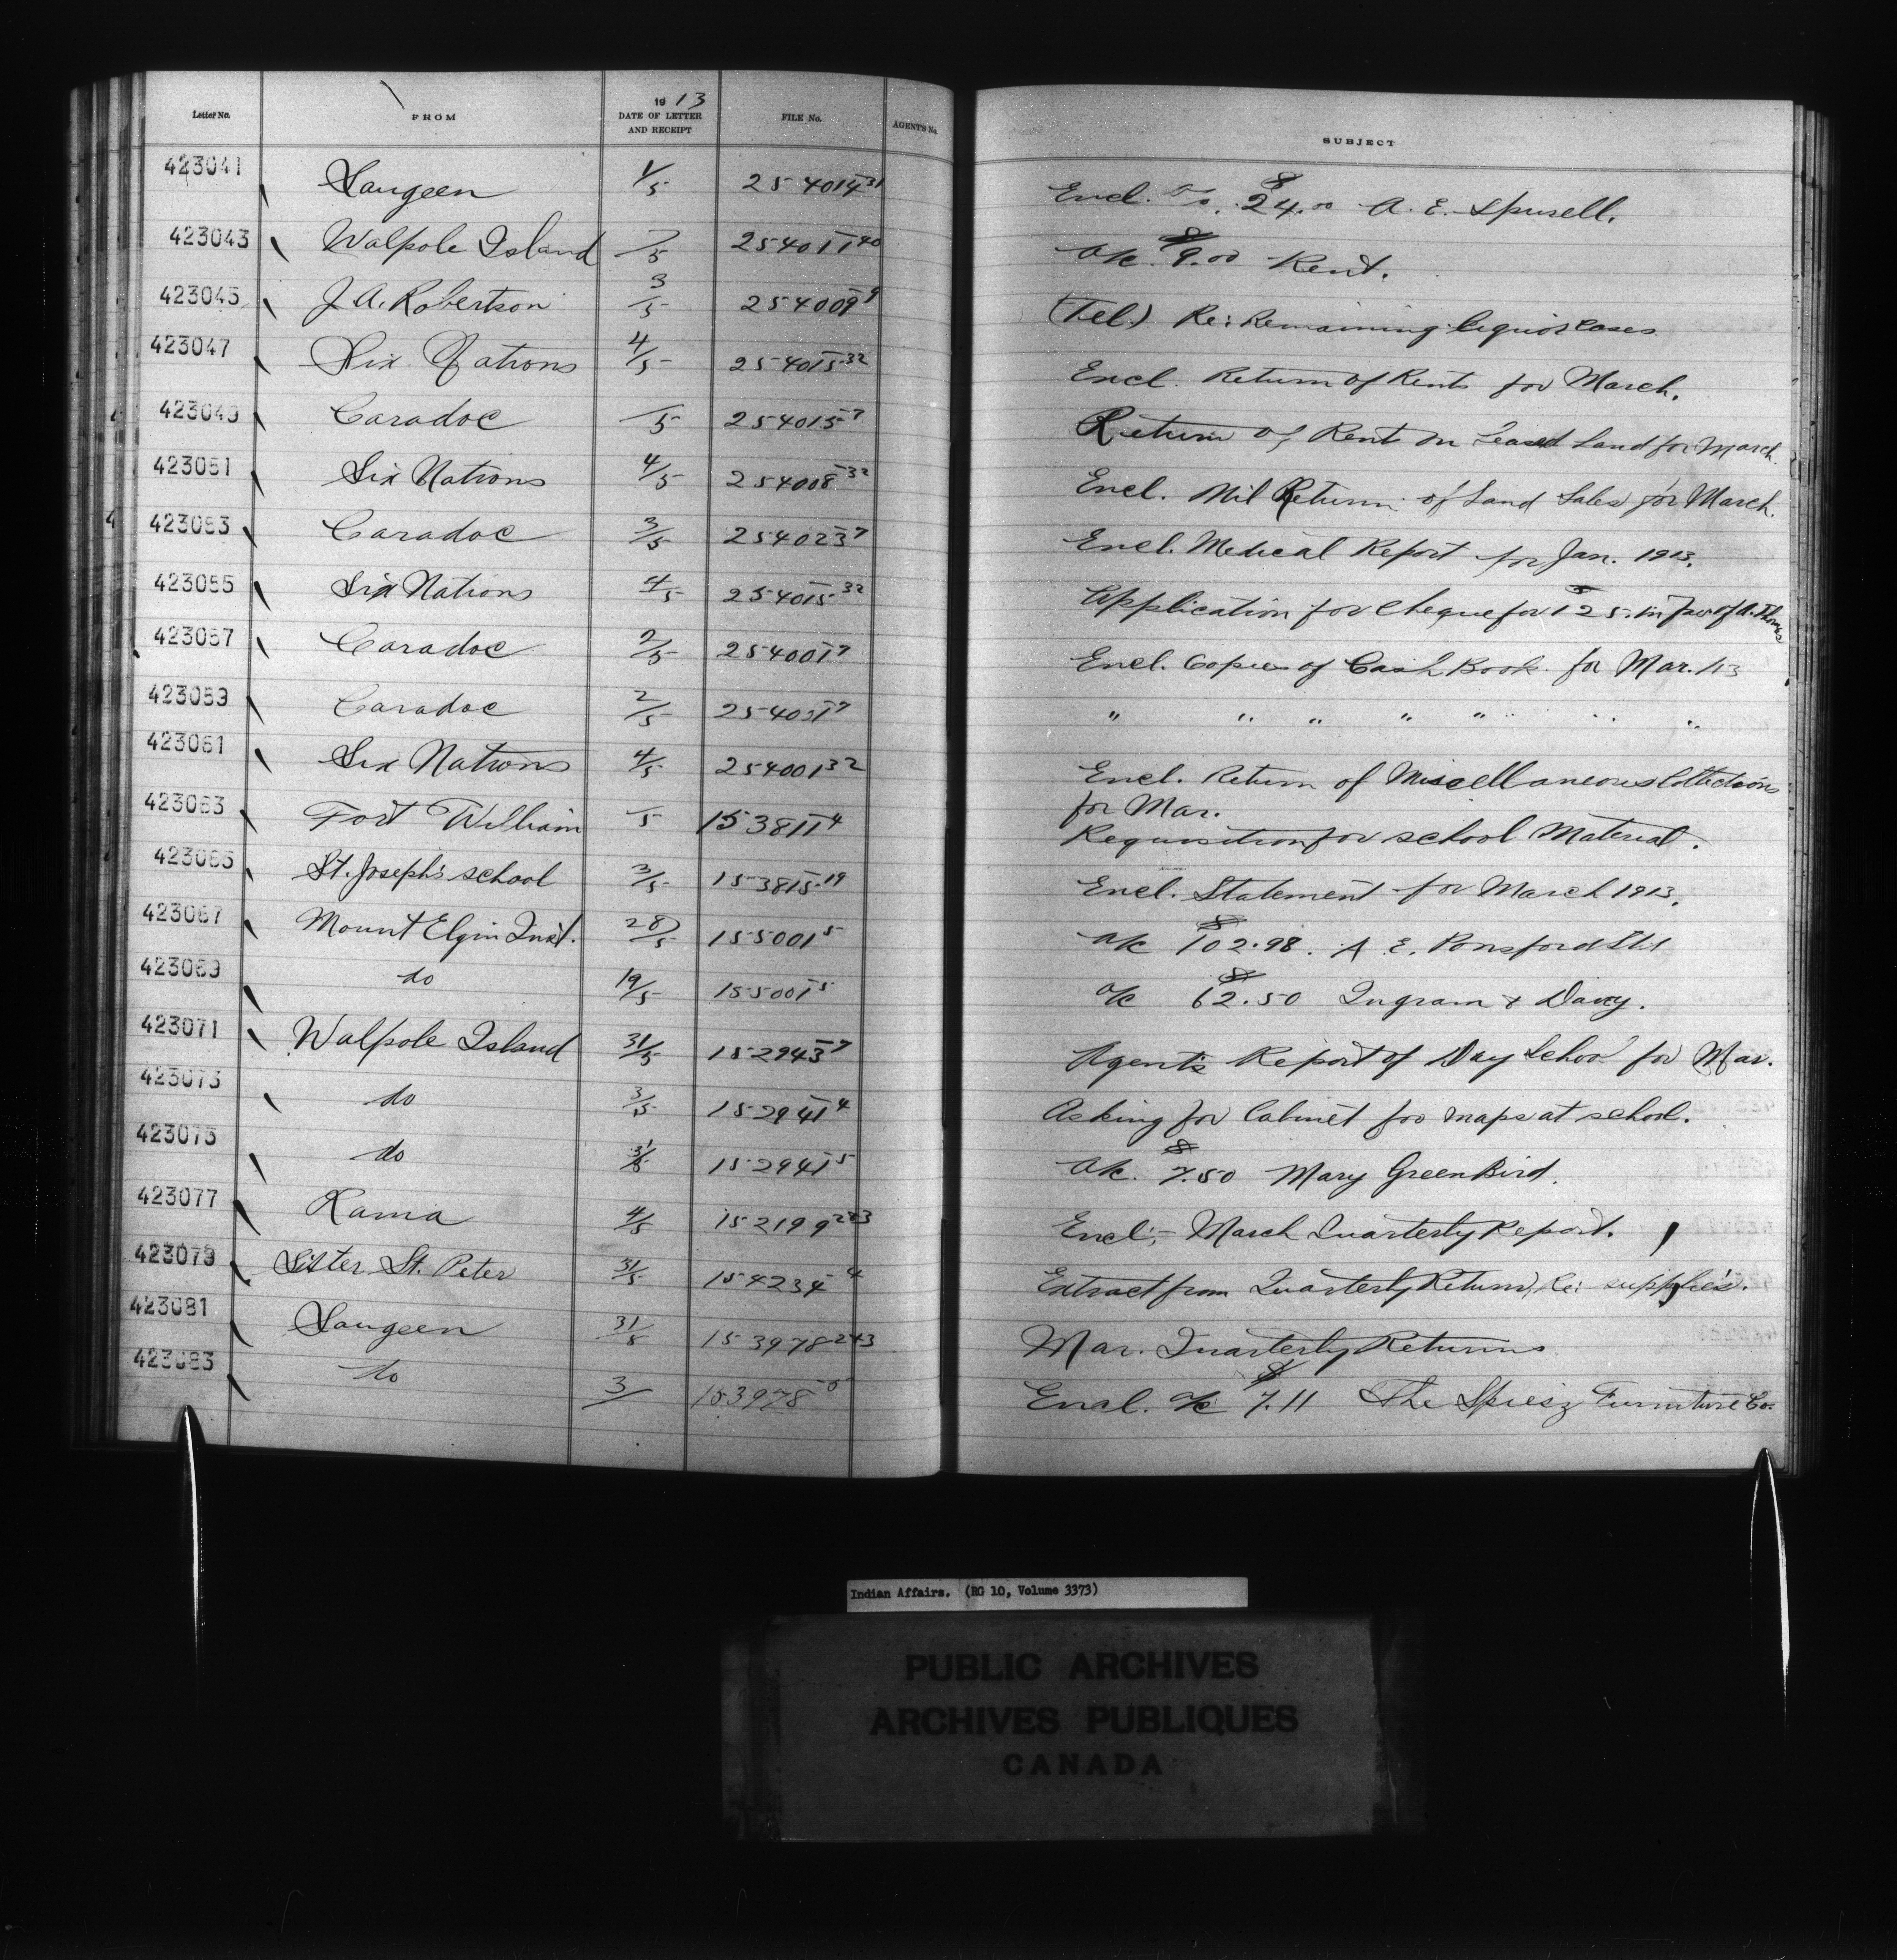 Letter No. FROM 19 13 DATE OF LETTER AND RECEIPT FILE No. AGENT'S No. SUBJECT
423041 Saugeen 1/5 254014-31 Encl. a/c. $ 24.00 A. E. Spusell.
423043 Walpole Island /5 254011-40 a/c $ 9.00 Rent.
423045 J. A. Robertson 3/5 254009-9 (Tel.) Re: Remaining liquor cases
423047 Six Nations 4/5 254015-32 Encl. Return of Rents for March.
423049 Caradoc /5 254015-7 Return of Rents on Leased Land for March.
423051 Six Nations 4/5 254008-32 Encl. Nil Return of Land Sales for March.
423053 Caradoc 3/5 254023-7 Encl. Medical Report for Jan. 1913.
423055 Six Nations 4/5 254015-32 Application for Cheque for $125. in fav. of A. Thomas
423057 Caradoc 2/5 254001-7 Encl. Copies of Cash Book for Mar. /13
423059 Caradoc 2/5 254031-7 " " " " " " " "
423061 Six Nations 4/5 254001-32 Encl. Return of Miscellaneous Collections
for Mar.
423063 Fort William /5 153811-4 Requisition for school Material.
423065 St. Joseph's school 3/5 153815-19 Encl. Statement for March 1913.
423067 Mount Elgin Inst. 28/5 155001-5 a/c $ 102.98. A. E. Ponsford Ltd
423069 do 19/5 155001-5 a/c $ 62.50 Ingram & Davey.
423071 Walpole Island 31/5 152943-7 Agent's Report of Day School for Mar.
423073 do 3/5 152941-4 Asking for Cabinet for maps at school.
423075 do 31/5 152941-5 a/c. $ 7.50 Mary GreenBird.
423077 Rama 4/5 152199-223 Encl:- March Quarterly Report.
423079 Sister St. Peter 31/5 154234-4 Extract from Quarterly Return, Re: supplies.
423081 Saugeen 31/5 153978-243 Mar. Quarterly Returns
423083 do 3/ 153978-5 Encl. a/c $ 7.11 The Spiesz Furniture Co.
Indian Affairs. (RG 10, Volume 3373)
PUBLIC ARCHIVES
ARCHIVES PUBLIQUES
CANADA